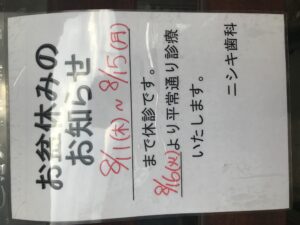 お盆休みの
お知らせ
8/11(木)～8/15(月)
まで休診です。
8/16(火)より平常通り診療
いたします。
ニシキ歯科